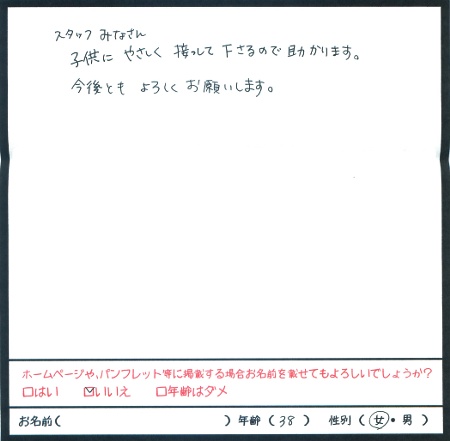 スタッフ みなさん
子供に やさしく 接っして 下さるので助かります。
今後とも よろしく お願いします。
ホームページや、パンフレット等に掲載する場合お名前を載せてもよろしいでしょうか?
□はい ☑いいえ □年齢はダメ
お名前( ) 年齢(38) 性別(女・男)